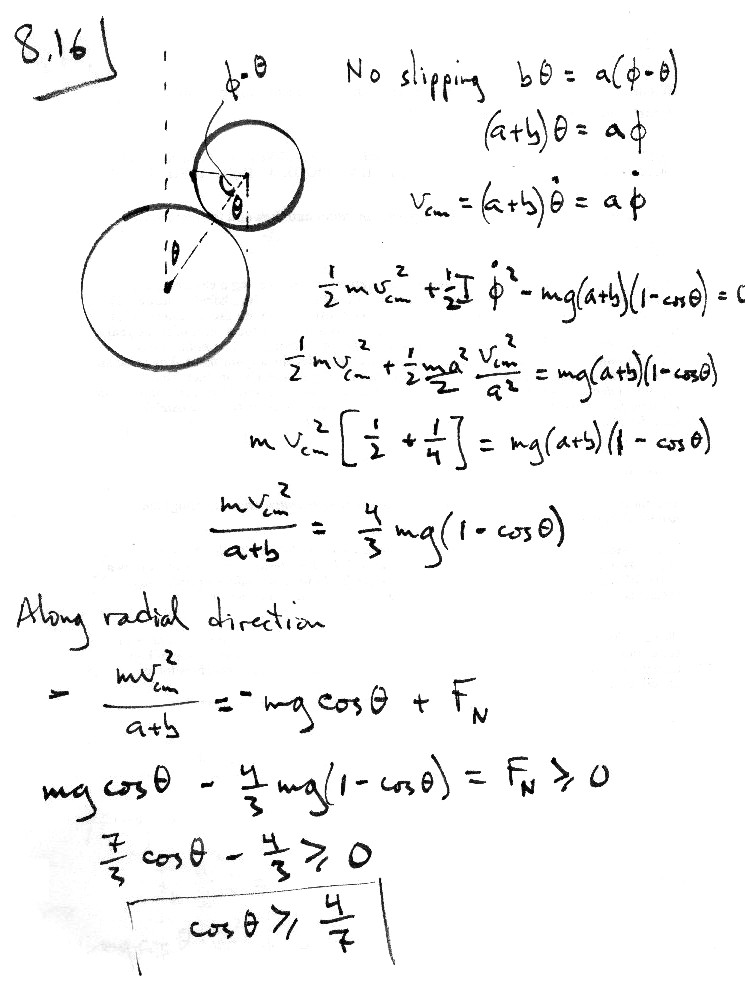 8.16
ϕ-θ
θ
θ
No slipping bθ = a(ϕ-θ)
(a+b)θ = aϕ
v_cm = (a+b)θ̇ = aϕ̇
1/2 m v_cm² + 1/2 I ϕ̇² - mg(a+b)(1-cosθ) = 0
1/2 m v_cm² + 1/2 ma²/2 v_cm²/a² = mg(a+b)(1-cosθ)
m v_cm² [1/2 + 1/4] = mg(a+b)(1 - cosθ)
m v_cm²/(a+b) = 4/3 mg(1-cosθ)
Along radial direction
- m v_cm²/(a+b) = -mg cosθ + F_N
mg cosθ - 4/3 mg(1-cosθ) = F_N ⩾ 0
7/3 cosθ - 4/3 ⩾ 0
cosθ ⩾ 4/7